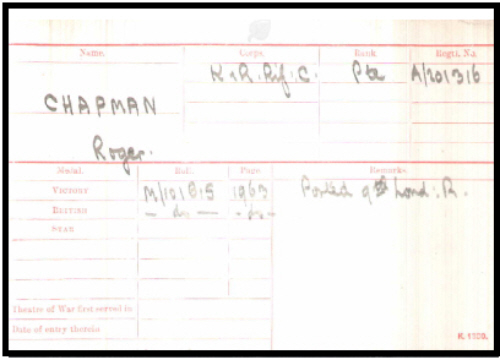 Name. Corps. Rank. Regtl. No.
K. R. Rif. C. Pte A/201316
CHAPMAN
Roger.
Medal. Roll. Page. Remarks.
VICTORY M/101B15 1963 Posted 9th Lond. R.
BRITISH - do - - do -
STAR
Theatre of War first served in
Date of entry therein
K. 1380.